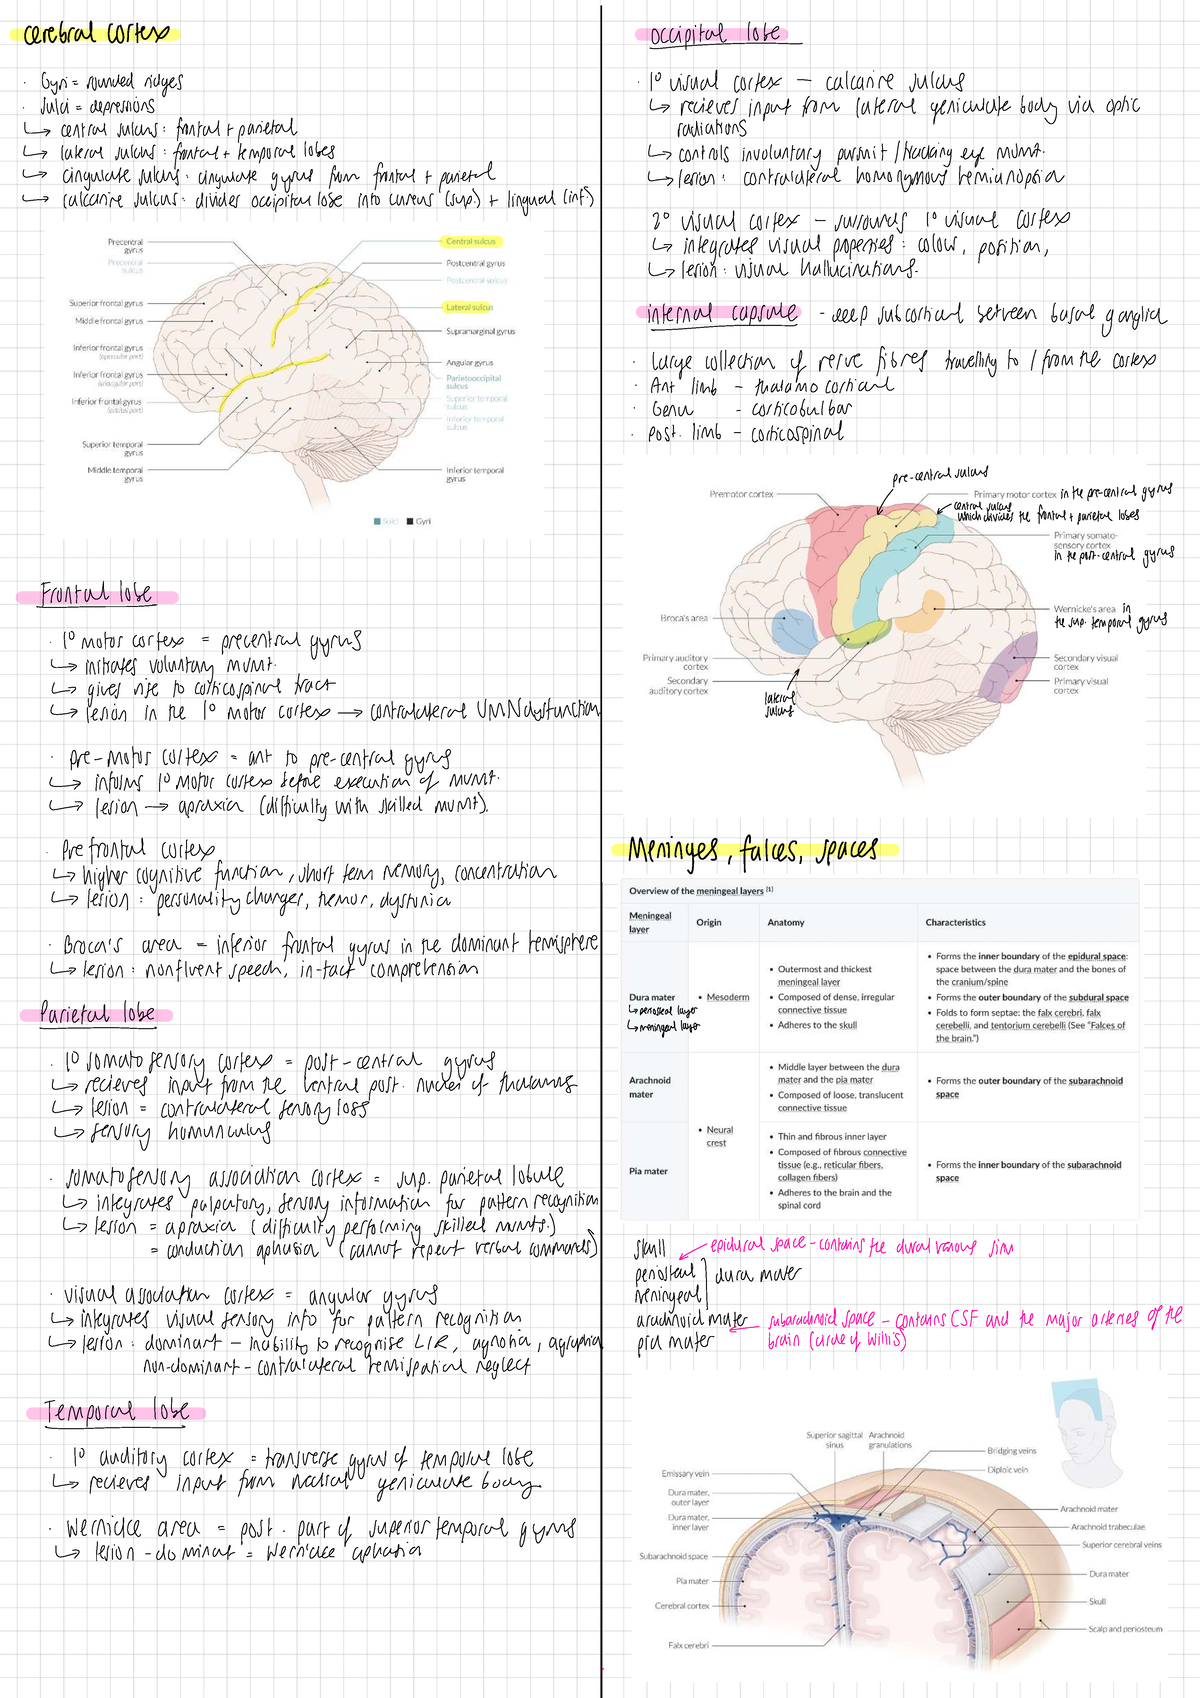 cerebral cortex
· Gyri = rounded ridges
· sulci = depressions
↳ central sulcus: frontal + parietal
↳ lateral sulcus: frontal + temporal lobes
↳ cingulate sulcus: cingulate gyrus from frontal + parietal
↳ calcarine sulcus: divides occipital lobe into cuneus (sup.) + lingual (inf.)
Precentral gyrus
Precentral sulcus
Superior frontal gyrus
Middle frontal gyrus
Inferior frontal gyrus (opercular part)
Inferior frontal gyrus (triangular part)
Inferior frontal gyrus (orbital part)
Superior temporal gyrus
Middle temporal gyrus
Central sulcus
Postcentral gyrus
Postcentral sulcus
Lateral sulcus
Supramarginal gyrus
Angular gyrus
Parietooccipital sulcus
Superior temporal sulcus
Inferior temporal sulcus
Inferior temporal gyrus
Sulci
Gyri
Frontal lobe
· 1° motor cortex = precentral gyrus
↳ initiates voluntary mvmt.
↳ gives rise to corticospinal tract
↳ lesion in the 1° motor cortex → contralateral UMN dysfunction
· Pre-motor cortex = ant to pre-central gyrus
↳ informs 1° motor cortex before execution of mvmt.
↳ lesion → apraxia (difficulty with skilled mvmt).
· Prefrontal cortex
↳ higher cognitive function, short term memory, concentration
↳ lesion: personality changes, tremor, dystonia
· Broca's area = inferior frontal gyrus in the dominant hemisphere
↳ lesion: nonfluent speech, in-tact comprehension
Parietal lobe
· 1° somatosensory cortex = post-central gyrus
↳ recieves input from the ventral post. nucleus of thalamus
↳ lesion = contralateral sensory loss
↳ sensory homunculus
· somatosensory association cortex = sup. parietal lobule
↳ integrates palpatory, sensory information for pattern recognition
↳ lesion = apraxia (difficulty performing skilled mvmts.)
= conduction aphasia (cannot repeat verbal commands)
· visual association cortex = angular gyrus
↳ integrates visual sensory info for pattern recognition.
↳ lesion: dominant - inability to recognise L/R, agnosia, agraphia
non-dominant - contralateral hemispatial neglect
Temporal lobe
· 1° auditory cortex = transverse gyrus of temporal lobe
↳ recieves input from medial geniculate body.
· Wernicke area = post. part of superior temporal gyrus
↳ lesion - dominat = wernicke aphasia
occipital lobe
· 1° visual cortex - calcarine sulcus
↳ recieves input from lateral geniculate body via optic
radiations
↳ controls involuntary pursuit / tracking eye mvmt.
↳ lesion: contralateral homonymous hemianopsia
2° visual cortex - surrounds 1° visual cortex
↳ integrates visual properties: colour, position,
↳ lesion: visual hallucinations.
internal capsule - deep subcortical between basal ganglia
· Large collection of nerve fibres travelling to / from the cortex
· Ant limb - thalamocortical
· Genu - corticobulbar
· post. limb - corticospinal
pre-central sulcus
Premotor cortex
Primary motor cortex in the pre-central gyrus
central sulcus
which divides the frontal + parietal lobes
Primary somato-sensory cortex
in the post-central gyrus
Broca's area
Wernicke's area in
the sup. temporal gyrus
Primary auditory cortex
Secondary auditory cortex
lateral sulcus
Secondary visual cortex
Primary visual cortex
Meninges, falces, spaces
Overview of the meningeal layers [1]
Meningeal layer
Origin
Anatomy
Characteristics
Dura mater
↳ periosteal layer
↳ meningeal layer
• Mesoderm
• Outermost and thickest meningeal layer
• Composed of dense, irregular connective tissue
• Adheres to the skull
• Forms the inner boundary of the epidural space: space between the dura mater and the bones of the cranium/spine
• Forms the outer boundary of the subdural space
• Folds to form septae: the falx cerebri, falx cerebelli, and tentorium cerebelli (See "Falces of the brain.")
Arachnoid mater
• Neural crest
• Middle layer between the dura mater and the pia mater
• Composed of loose, translucent connective tissue
• Forms the outer boundary of the subarachnoid space
Pia mater
• Thin and fibrous inner layer
• Composed of fibrous connective tissue (e.g., reticular fibers, collagen fibers)
• Adheres to the brain and the spinal cord
• Forms the inner boundary of the subarachnoid space
skull
epidural space - contains the dural venous sinu
periosteal
meningeal
dura mater
arachnoid mater
subarachnoid space - contains CSF and the major arteries of the
brain (circle of Willis)
pia mater
Superior sagittal sinus
Arachnoid granulations
Emissary vein
Dura mater, outer layer
Dura mater, inner layer
Subarachnoid space
Pia mater
Cerebral cortex
Falx cerebri
Bridging veins
Diploic vein
Arachnoid mater
Arachnoid trabeculae
Superior cerebral veins
Dura mater
Skull
Scalp and periosteum